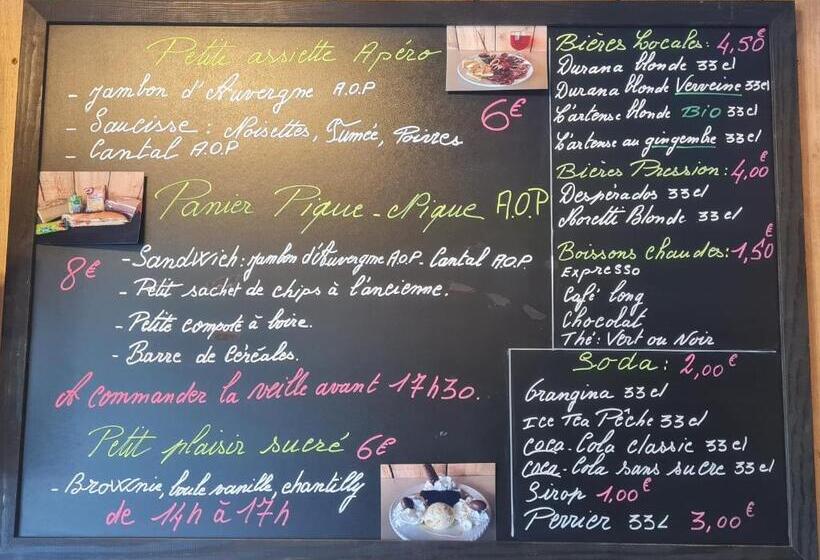 Petite assiette Apéro
- Jambon d'Auvergne A.O.P
6€
- Saucisse : Noisettes, Fumée, Poivres
- Cantal A.O.P
Panier Pique-Nique A.O.P
8€
- Sandwich : Jambon d'Auvergne A.O.P - Cantal A.O.P
- Petit sachet de chips à l'ancienne.
- Petite compote à boire.
- Barre de Céréales.
A commander la veille avant 17h30.
Petit plaisir sucré 6€
- Brownie, boule vanille, chantilly
de 14h à 17h
Bières Locales : 4,50€
Durana blonde 33 cl
Durana blonde Verveine 33cl
L'artense blonde Bio 33 cl
L'artense au gingembre 33 cl
Bières Pression : 4,00€
Despérados 33 cl
Norette Blonde 33 cl
Boissons chaudes : 1,50€
Expresso
Café long
Chocolat
Thé : Vert ou Noir
Soda : 2,00€
Orangina 33 cl
Ice Tea Pêche 33 cl
Coca-Cola classic 33 cl
Coca-Cola sans sucre 33 cl
Sirop 1,00€
Perrier 33L 3,00€